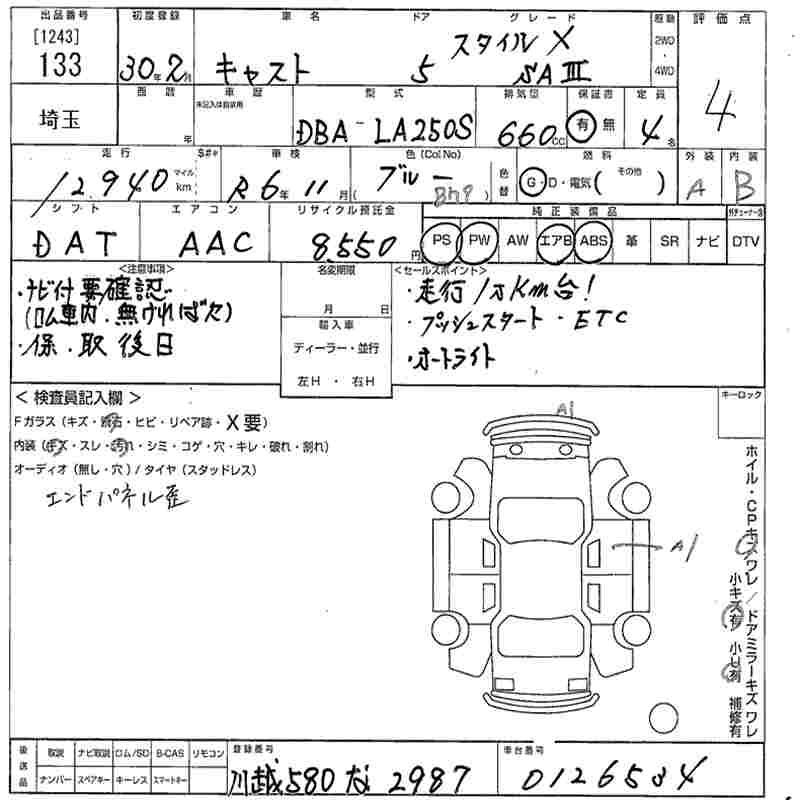 出品番号 初度登録 車名 ドア グレード 駆動 評価点
[1243]
133 30年2月 キャスト 5 スタイル X 2WD・4WD
SAIII 4
埼玉 西暦 年 車歴 未記入は自家用 型式 排気量 保証書 定員
DBA-LA250S 660cc 有 無 4名
走行 S## 車検 色(ColNo) 色替 燃料 外装 内装
12.940 マイル km R6年11月 ブルー (B79) G・D・電気( その他 ) A B
シフト エアコン リサイクル預託金 純正装備品
DAT AAC 8,550円 PS PW AW エアB ABS 革 SR ナビ DTV
<注意事項> 名変期限 <セールスポイント>
・ナビ付要確認 ・走行1万Km台!
(ロム車内.無ければ欠) 月 日 ・プッシュスタート・ETC
・保.取後日 輸入車 ・オートライト
ディーラー・並行
左H・右H
< 検査員記入欄 > キーロック
Fガラス(キズ・飛石・ヒビ・リペア跡・X要)
内装(キズ・スレ・汚れ・シミ・コゲ・穴・キレ・破れ・割れ)
オーディオ(無し・穴)/タイヤ(スタッドレス)
エンドパネル歪
A1
A1
ホイル・CPキズワレ/ドアミラーキズワレ
小キズ有 小U有 補修有
後送品 取説 ナビ取説 ロム/SD B-CAS リモコン 登録番号 車台番号
ナンバー スペアキー キーレス スマートキー 川越 580 な 2987 0126584